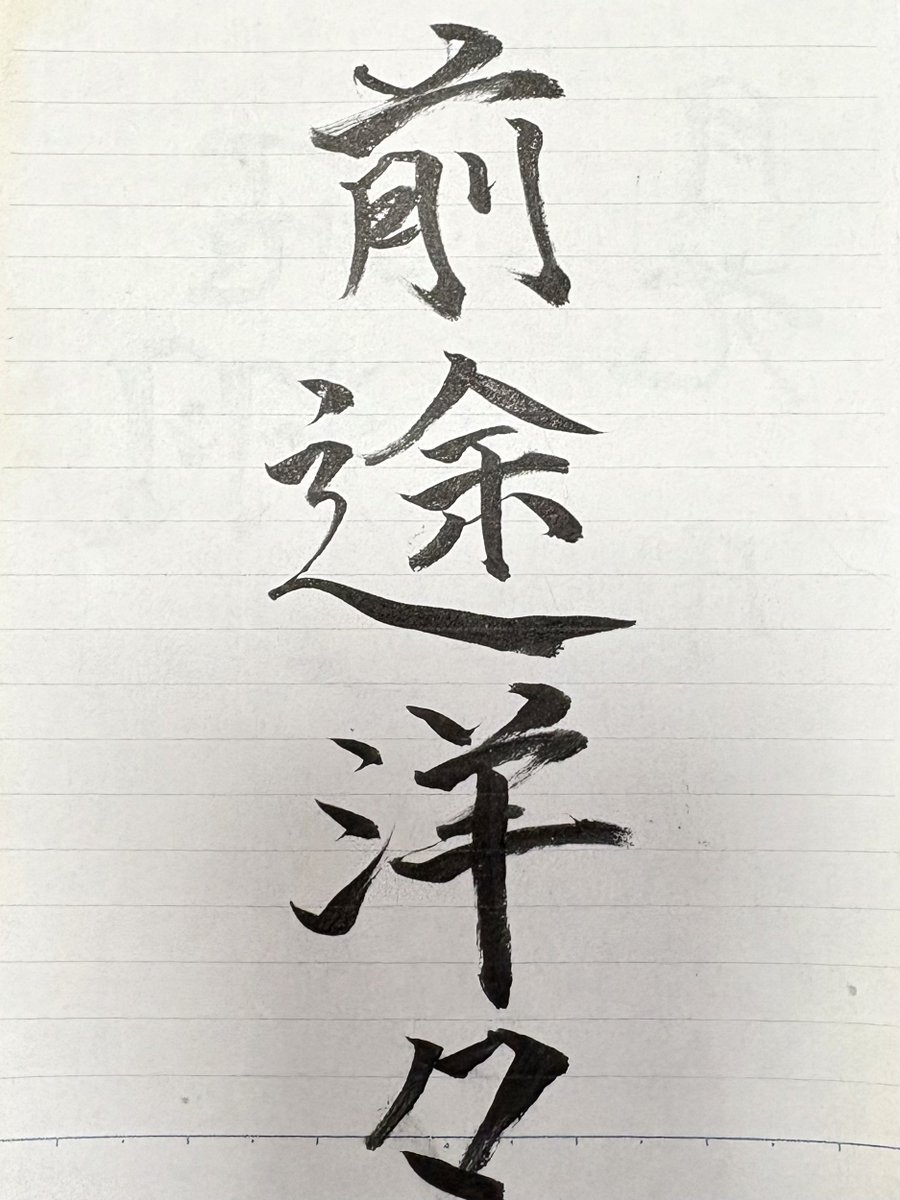 前途洋々